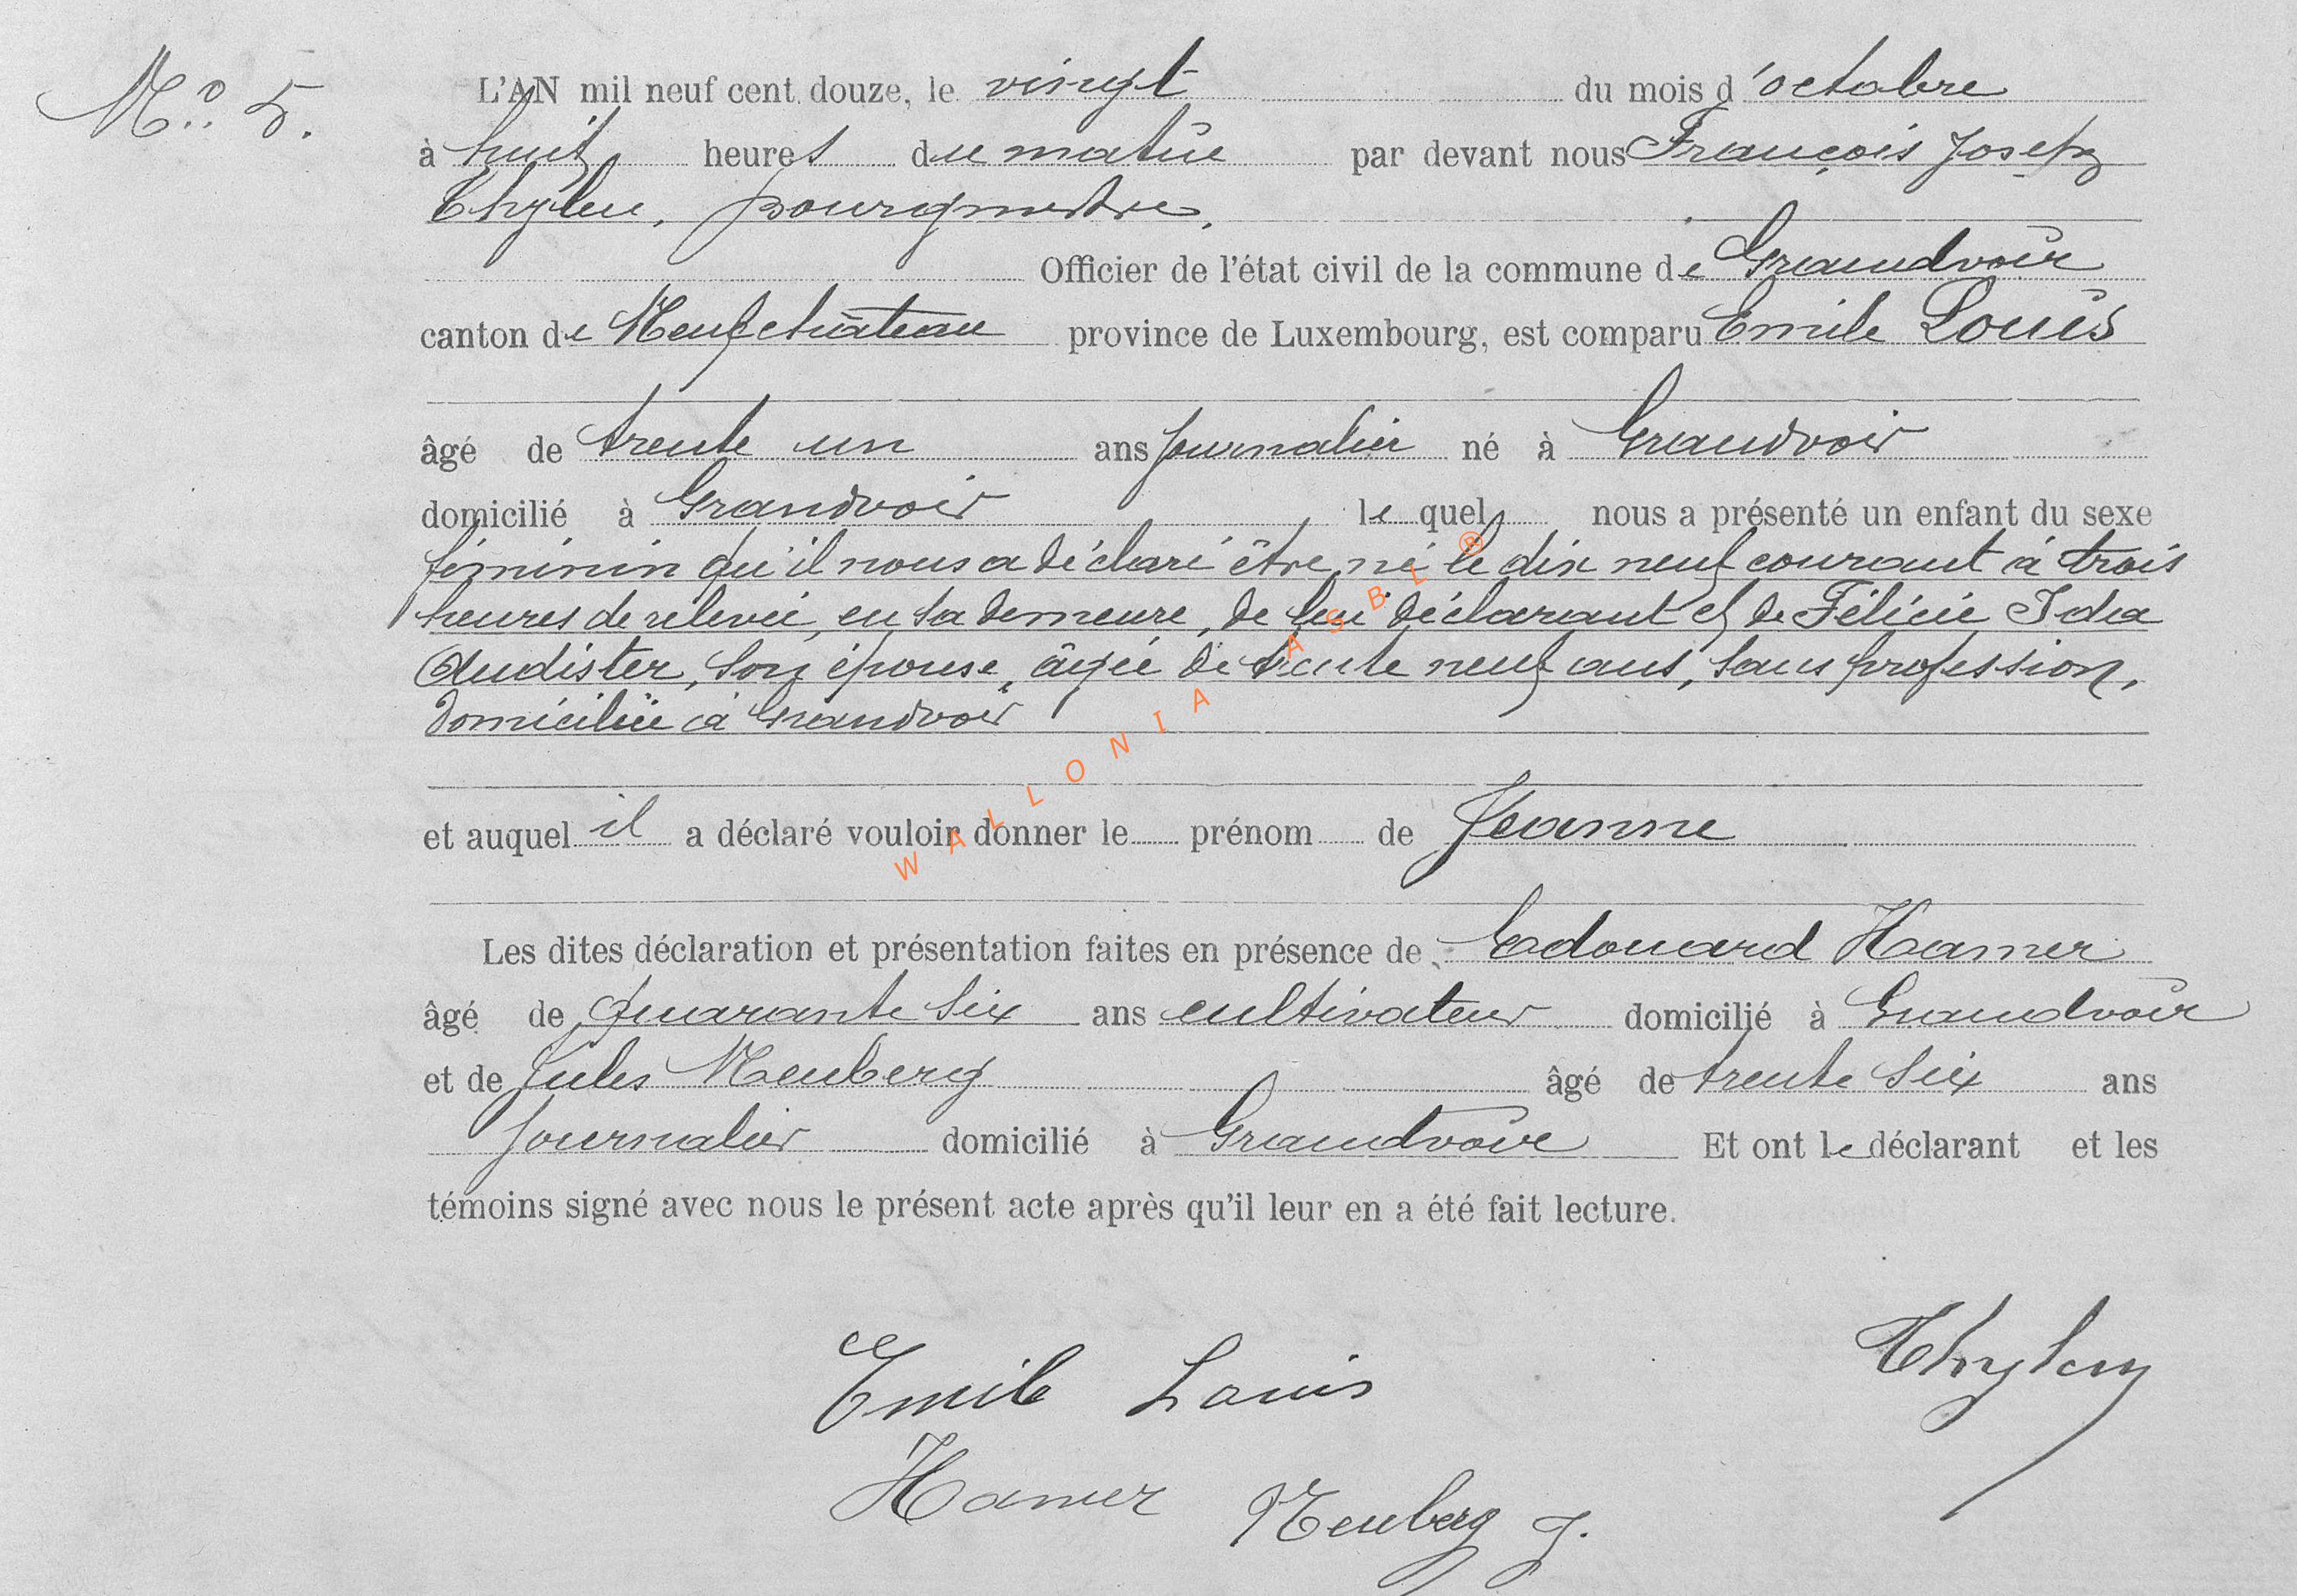 N° 5.
L'AN mil neuf cent douze, le vingt du mois d'octobre
à huit heures du matin par devant nous François Joseph
Thylen, bourgmestre,
Officier de l'état civil de la commune de Grandvoir
canton de Neufchâteau province de Luxembourg, est comparu Emile Louis
âgé de trente un ans journalier né à Grandvoir
domicilié à Grandvoir lequel nous a présenté un enfant du sexe
féminin qu'il nous a déclaré être né le dix neuf courant à trois
heures de relevée, en sa demeure, de lui déclarant et de Félicie Ida
Audister, son épouse, âgée de trente neuf ans, sans profession,
domiciliée à Grandvoir
et auquel il a déclaré vouloir donner le prénom de Jeanne
Les dites déclaration et présentation faites en présence de Edouard Hamer
âgé de quarante six ans cultivateur domicilié à Grandvoir
et de Jules Neuberg âgé de trente six ans
journalier domicilié à Grandvoir Et ont le déclarant et les
témoins signé avec nous le présent acte après qu'il leur en a été fait lecture.
Emile Louis Thylen
Hamer Neuberg J.
WALLONIA ASBL ®